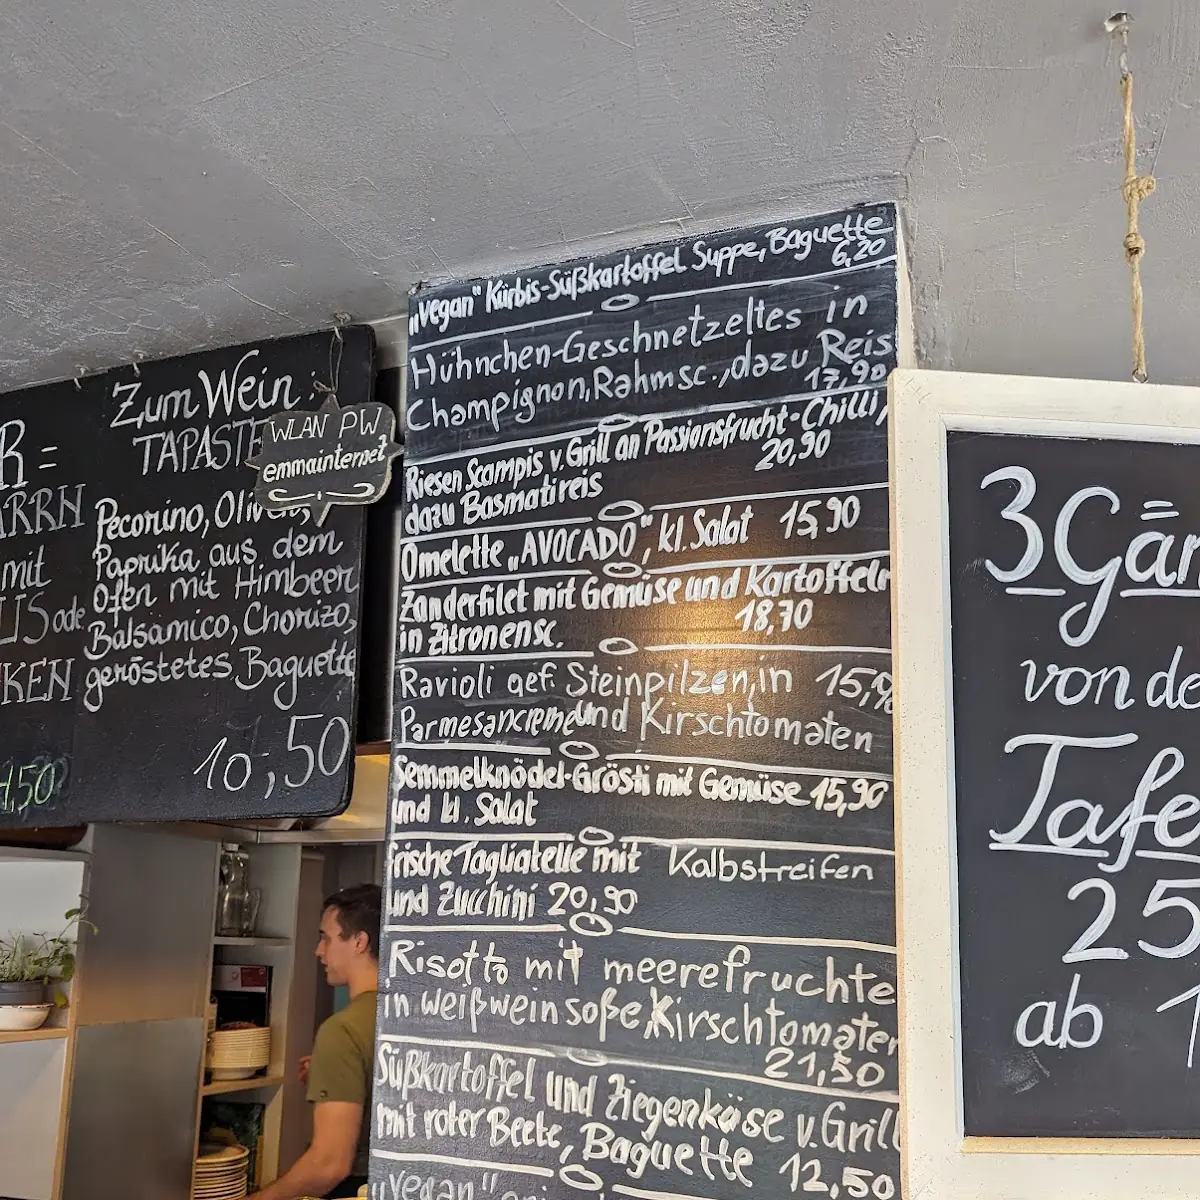 R =
ARRN
mit
US ode
KEN
4,50
Zum Wein :
TAPASTE
Pecorino, Oliven,
Paprika aus dem
Ofen mit Himbeer
Balsamico, Chorizo,
geröstetes Baguette
10,50
WLAN PW
emmainternet
„vegan" Kürbis-Süßkartoffel Suppe, Baguette
6,20
Hühnchen-Geschnetzeltes in
Champignon, Rahmsc., dazu Reis
17,90
Riesen Scampis v. Grill an Passionsfrucht-Chilli,
dazu Basmatireis 20,90
Omelette „AVOCADO", kl. Salat 15,90
Zanderfilet mit Gemüse und Kartoffeln
in Zitronensc. 18,70
Ravioli gef. Steinpilzen, in 15,
Parmesancreme und Kirschtomaten
Semmelknödel-Grösti mit Gemüse 15,90
und kl. Salat
frische Tagliatelle mit Kalbstreifen
und Zucchini 20,90
Risotto mit meerefruchte
in weißwein soße, Kirschtomaten
21,50
Süßkartoffel und Ziegenkäse v. Grill
mit roter Beete, Baguette 12,50
„vegan"
3 Gän
von de
Tafe
25
ab 1